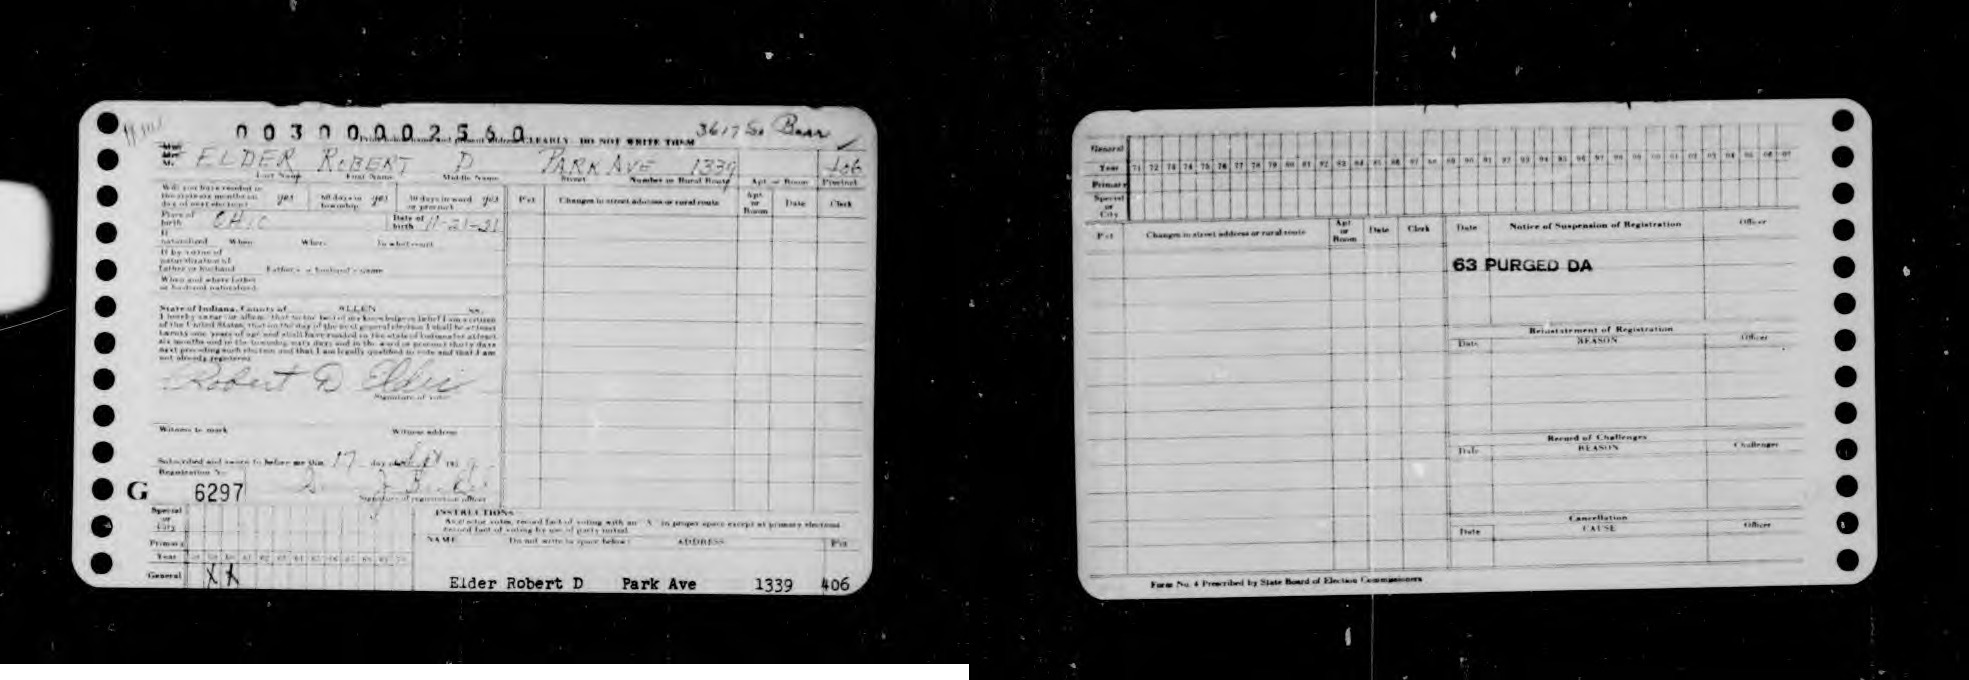 0030000 2560 3617 So
CLEARLY. DO NOT WRITE THEM
ELDER ROBERT D PARK AVE 1339 406
Last Name First Name Middle Name Street Number or Rural Route Apt or Room Precinct
Will you have resided in
the state six months on
day of next election? yes 60 days in township yes 30 days in ward or precinct yes
Pct Changes in street address or rural route Apt or Room Date Clerk
Place of birth OHIO Date of birth 11-21-31
If
naturalized When Where In what court
If by virtue of
naturalization of
father or husband Father's or husband's name
When and where father
or husband naturalized
State of Indiana, County of ALLEN SS.
I hereby swear (or affirm) that to the best of my knowledge or belief I am a citizen
of the United States, that on the day of the next general election I shall be at least
twenty one years of age and shall have resided in the state of Indiana for at least
six months and in the township sixty days and in the ward or precinct thirty days
next preceding such election and that I am legally qualified to vote and that I am
not already registered
Robert D Elder
Signature of voter
Witness to mark Witness address
Subscribed and sworn to before me this 17 day of Sept 195
Registration No.
G 6297
Signature of registration officer
INSTRUCTIONS
As elector votes, record fact of voting with an "X" in proper space except at primary elections
Record fact of voting by use of party voted
NAME Do not write in space below: ADDRESS Pct
Special
or
City
Primary
Year 60 61 62 63 64 65 66 67 68 69 70
General X X
Elder Robert D Park Ave 1339 406
General
Year 71 72 73 74 75 76 77 78 79 80 81 82 83 84 85 86 87 88 89 90 91 92 93 94 95 96 97 98 99 00 01 02 03 04 05 06 07
Primary
Special
or
City
Pct Changes in street address or rural route Apt or Room Date Clerk
Date Notice of Suspension of Registration Officer
63 PURGED DA
Reinstatement of Registration
Date REASON Officer
Record of Challenges
Date REASON Challenger
Cancellation
Date CAUSE Officer
Form No. 4 Prescribed by State Board of Election Commissioners